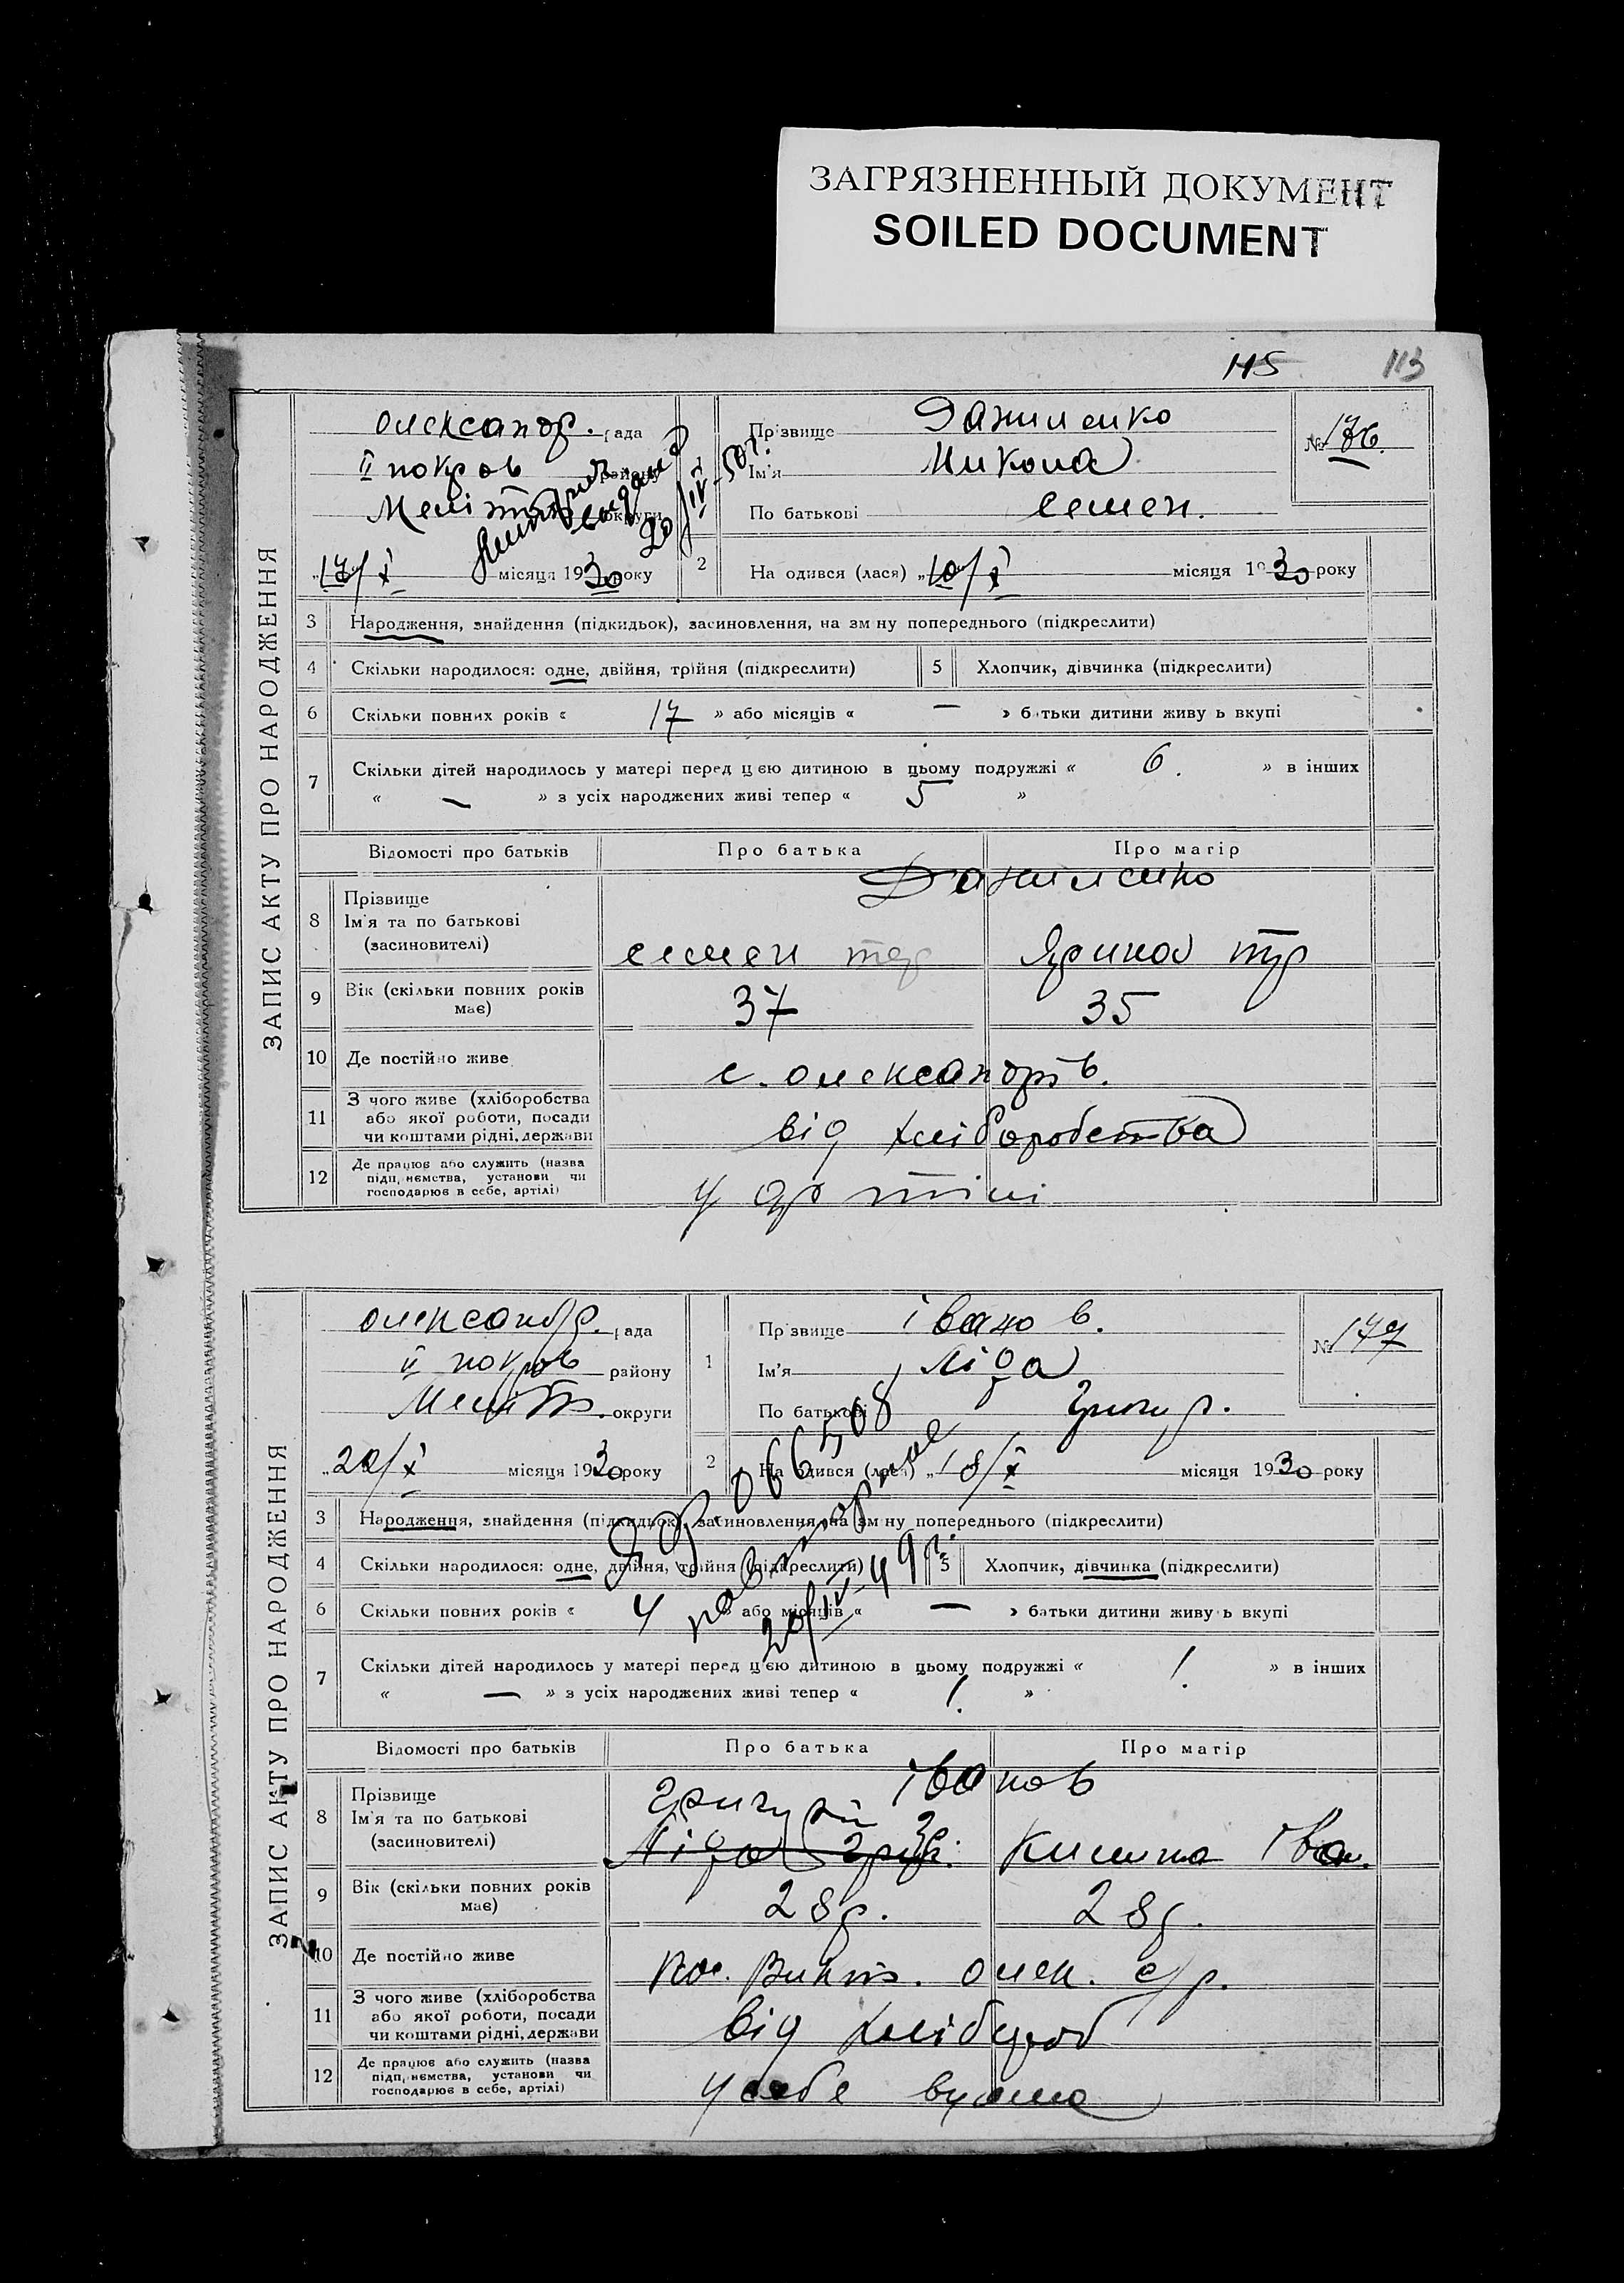 ЗАГРЯЗНЕННЫЙ ДОКУМЕНТ
SOILED DOCUMENT
115 113
ЗАПИС АКТУ ПРО НАРОДЖЕННЯ
Олександр. рада
II покров району
Меліт округи
17/X місяця 1930 року
20/IV-50 г.
Прізвище Даниленко
Ім'я Микола
По батькові Семен.
№ 176.
2 На одився (лася) „10/X місяця 1930 року
3 Народження, знайдення (підкидьок), засиновлення, на зм ну попереднього (підкреслити)
4 Скільки народилося: одне, двійня, трійня (підкреслити) 5 Хлопчик, дівчинка (підкреслити)
6 Скільки повних років « 17 » або місяців « — » батьки дитини живу ь вкупі
7 Скільки дітей народилось у матері перед цією дитиною в цьому подружжі « 6. » в інших
« — » з усіх народжених живі тепер « 5 »
Відомості про батьків Про батька Про матір
Даниленко
8 Прізвище
Ім'я та по батькові
(засиновителі)
Семен Ярина
9 Вік (скільки повних років має) 37 35
10 Де постійно живе с. Олександрів.
11 З чого живе (хліборобства
або якої роботи, посади
чи коштами рідні, держави
від хліборобства
12 Де працює або служить (назва
підп, немства, установи чи
господарює в себе, артілі)
у артілі
ЗАПИС АКТУ ПРО НАРОДЖЕННЯ
Олександр. рада
II покров району
Меліт. округи
20/X місяця 1930 року
1 Прізвище Іванов.
Ім'я Ліда
По батькові Григ р.
№ 177
2 На одився (лася) „18/X місяця 1930 року
066508
повторное
20/IV-49 г.
3 Народження, знайдення (підкидьок), засиновлення, на зм ну попереднього (підкреслити)
4 Скільки народилося: одне, двійня, трійня (підкреслити) 5 Хлопчик, дівчинка (підкреслити)
6 Скільки повних років « 4 » або місяців « — » батьки дитини живу ь вкупі
7 Скільки дітей народилось у матері перед цією дитиною в цьому подружжі « 1 » в інших
« — » з усіх народжених живі тепер « 1. »
Відомості про батьків Про батька Про матір
Іванов
8 Прізвище
Ім'я та по батькові
(засиновителі)
Іван.
9 Вік (скільки повних років має) 28 р. 28 р.
10 Де постійно живе Олек. с/р.
11 З чого живе (хліборобства
або якої роботи, посади
чи коштами рідні, держави
від хлібороб
12 Де працює або служить (назва
підп, немства, установи чи
господарює в себе, артілі)
у себе